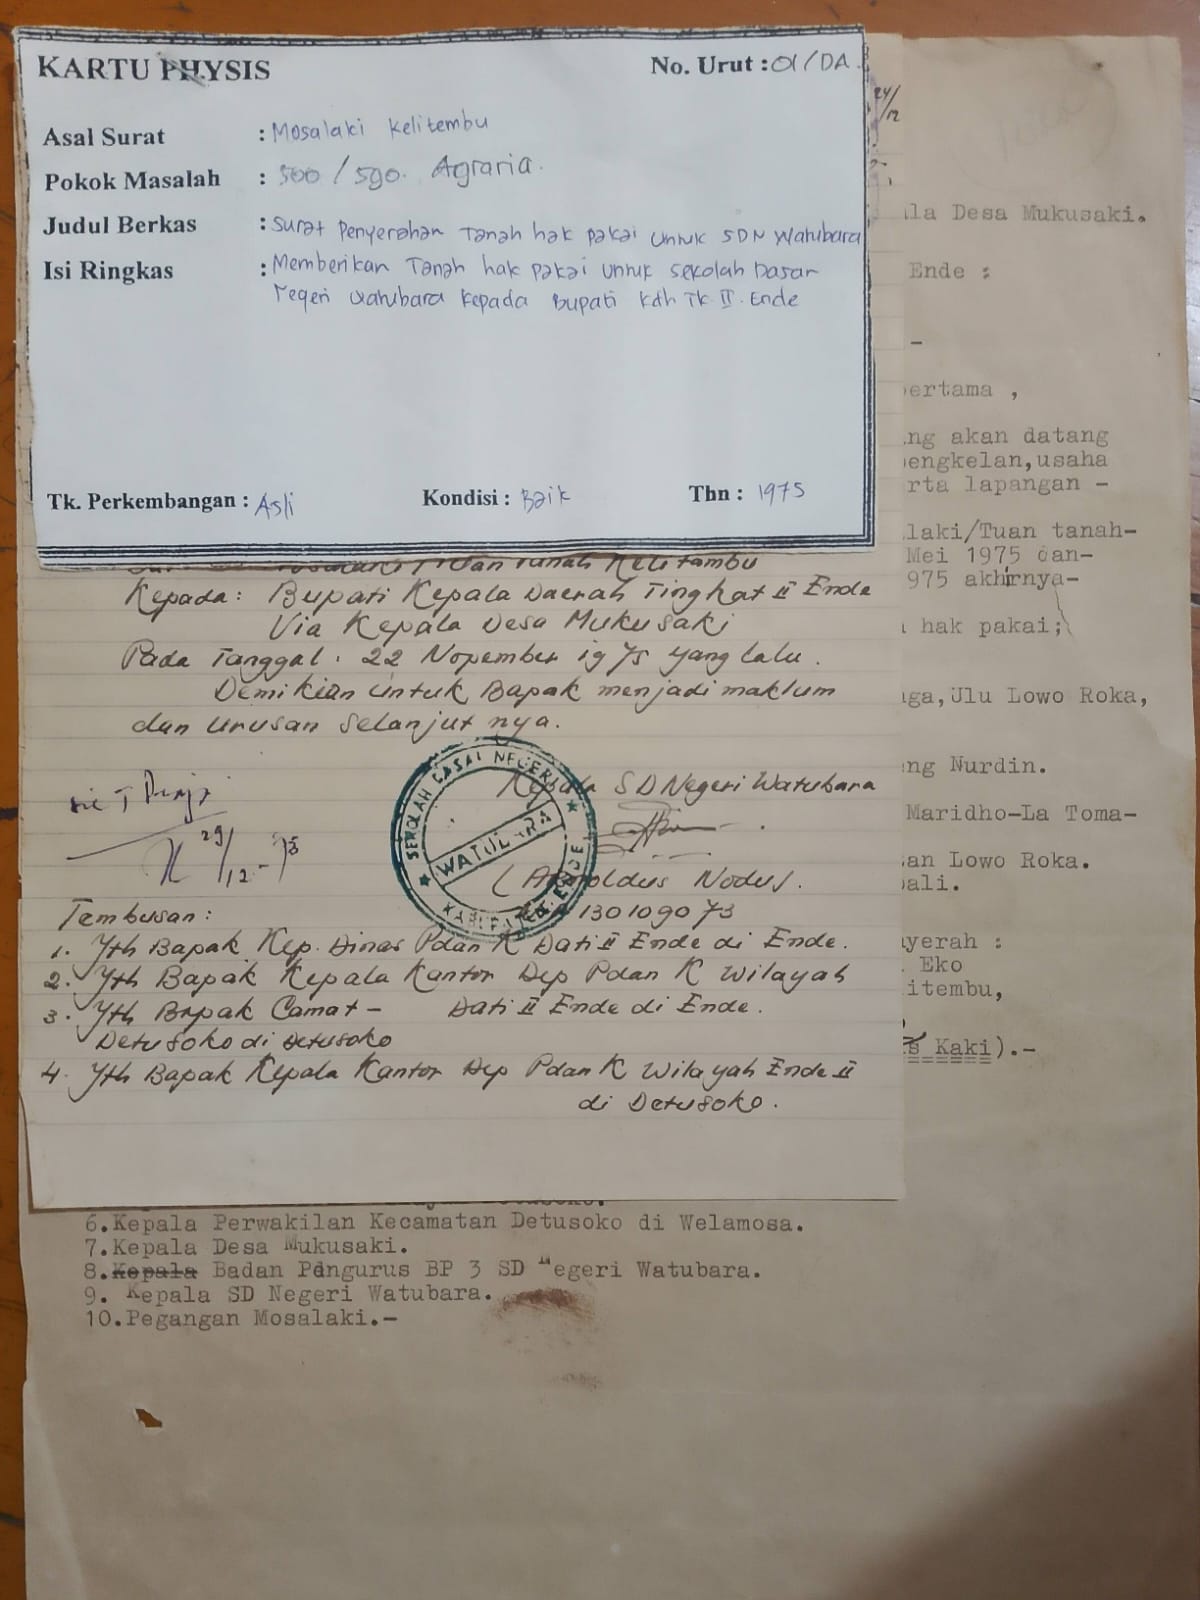 KARTU PHYSIS
No. Urut : 01/DA.
Asal Surat : Mosalaki Kelitembu
Pokok Masalah : 500 / 590. Agraria.
Judul Berkas : Surat Penyerahan Tanah hak pakai untuk SDN Watubara
Isi Ringkas : Memberikan Tanah hak pakai untuk sekolah Dasar
Negeri Watubara kepada Bupati Kdh Tk II. Ende
Tk. Perkembangan : Asli
Kondisi : Baik
Thn : 1975
Tuan Tanah Kelitambu
Kepada : Bupati Kepala Daerah Tingkat II Ende
Via Kepala Desa Mukusaki
Pada Tanggal. 22 Nopember 1975 yang lalu.
Demikian untuk Bapak menjadi maklum
dan urusan selanjut nya.
Kepala SD Negeri Watubara
29/12-75
SEKOLAH DASAR NEGERI
WATUBARA
KABUPATEN ENDE
(Arnoldus Nodus).
130109073
Tembusan :
1. Yth Bapak Kep. Dinas Pdan K Dati II Ende di Ende.
2. Yth Bapak Kepala Kantor Dep Pdan K Wilayah
Dati II Ende di Ende.
3. Yth Bapak Camat -
Detusoko di Detusoko
4. Yth Bapak Kepala Kantor Dep Pdan K Wilayah Ende II
di Detusoko.
24/12
la Desa Mukusaki.
Ende :
ertama ,
ng akan datang
engkelan,usaha
rta lapangan -
laki/Tuan tanah-
Mei 1975 dan-
975 akhirnya-
hak pakai;
ga,Ulu Lowo Roka,
ng Nurdin.
Maridho-La Toma-
an Lowo Roka.
bali.
yerah :
Eko
itembu,
s Kaki).-
6.Kepala Perwakilan Kecamatan Detusoko di Welamosa.
7.Kepala Desa Mukusaki.
8.Kepala Badan Pangurus BP 3 SD Negeri Watubara.
9. Kepala SD Negeri Watubara.
10.Pegangan Mosalaki.-